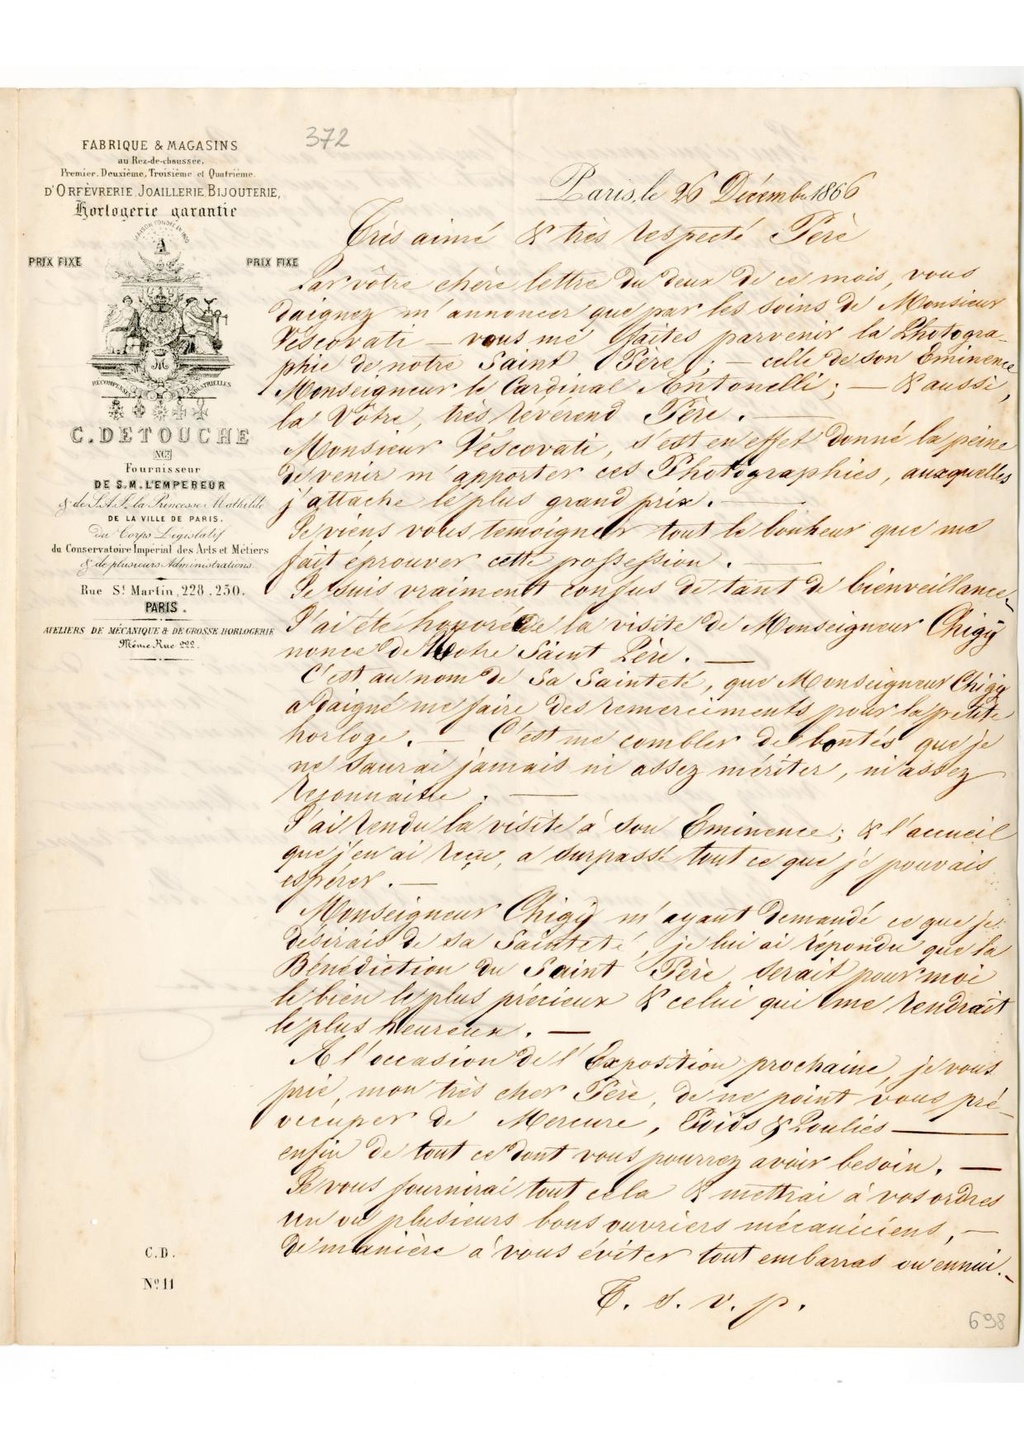 372
FABRIQUE & MAGASINS
au Rez-de-chaussée,
Premier, Deuxième, Troisième et Quatrième
D'ORFÈVRERIE JOAILLERIE BIJOUTERIE,
Horlogerie garantie
PRIX FIXE
PRIX FIXE
RÉCOMPENSES INDUSTRIELLES
C. DETOUCHE
NGT
Fournisseur
DE S.M. L'EMPEREUR
& de S.A.I. la Princesse Mathilde
DE LA VILLE DE PARIS,
du Corps Législatif
du Conservatoire Impérial des Arts et Métiers
& de plusieurs Administrations
Rue St Martin, 228, 230.
PARIS.
ATELIERS DE MÉCANIQUE & DE GROSSE HORLOGERIE
Même Rue 222.
C.D.
No 11
Paris, le 26 Décembre 1866
Très aimé & très respecté Père
Par vôtre chère lettre du deux de ce mois, vous
daignez m'annoncer que par les soins de Monsieur
Vescovati — vous me faites parvenir la Photogra-
phie de notre Saint Père ; — celle de son Eminence
Monseigneur le Cardinal Antonelli ; — & aussi,
la Vôtre, très Révérend Père. —
Monsieur Vescovati, s'est en effet donné la peine
de venir m'apporter ces Photographies, auxquelles
j'attache le plus grand prix. —
Je viens vous temoigner tout le bonheur que me
fait éprouver cette possession. —
Je suis vraiment confus de tant de bienveillance. —
J'ai été honoré de la visite de Monseigneur Chigy
nonce de Notre Saint Père. —
C'est au nom de Sa Sainteté, que Monseigneur Chigy
a daigné me faire des remerciments pour la petite
horloge. — C'est me combler de bontés que je
ne saurai jamais ni assez mériter, ni assez
reconnaitre. —
J'ai rendu la visite à son Eminence ; & l'accueil
que j'en ai reçu, a surpassé tout ce que je pouvais
espérer. —
Monseigneur Chigy m'ayant demandé ce que je
désirais de sa Sainteté, je lui ai répondu que la
Bénédiction du Saint Père, serait pour moi
le bien le plus précieux & celui qui me rendrait
le plus heureux. —
A l'occasion de l'Exposition prochaine, je vous
prie, mon très cher Père, de ne point vous pré-
occuper de Mercure, Poids & Poulies —
enfin de tout ce dont vous pourrez avoir besoin. —
Je vous fournirai tout cela & mettrai à vos ordres
un ou plusieurs bons ouvriers mécaniciens, —
de manière à vous éviter tout embarras ou ennui. —
T. S. v. p.
698